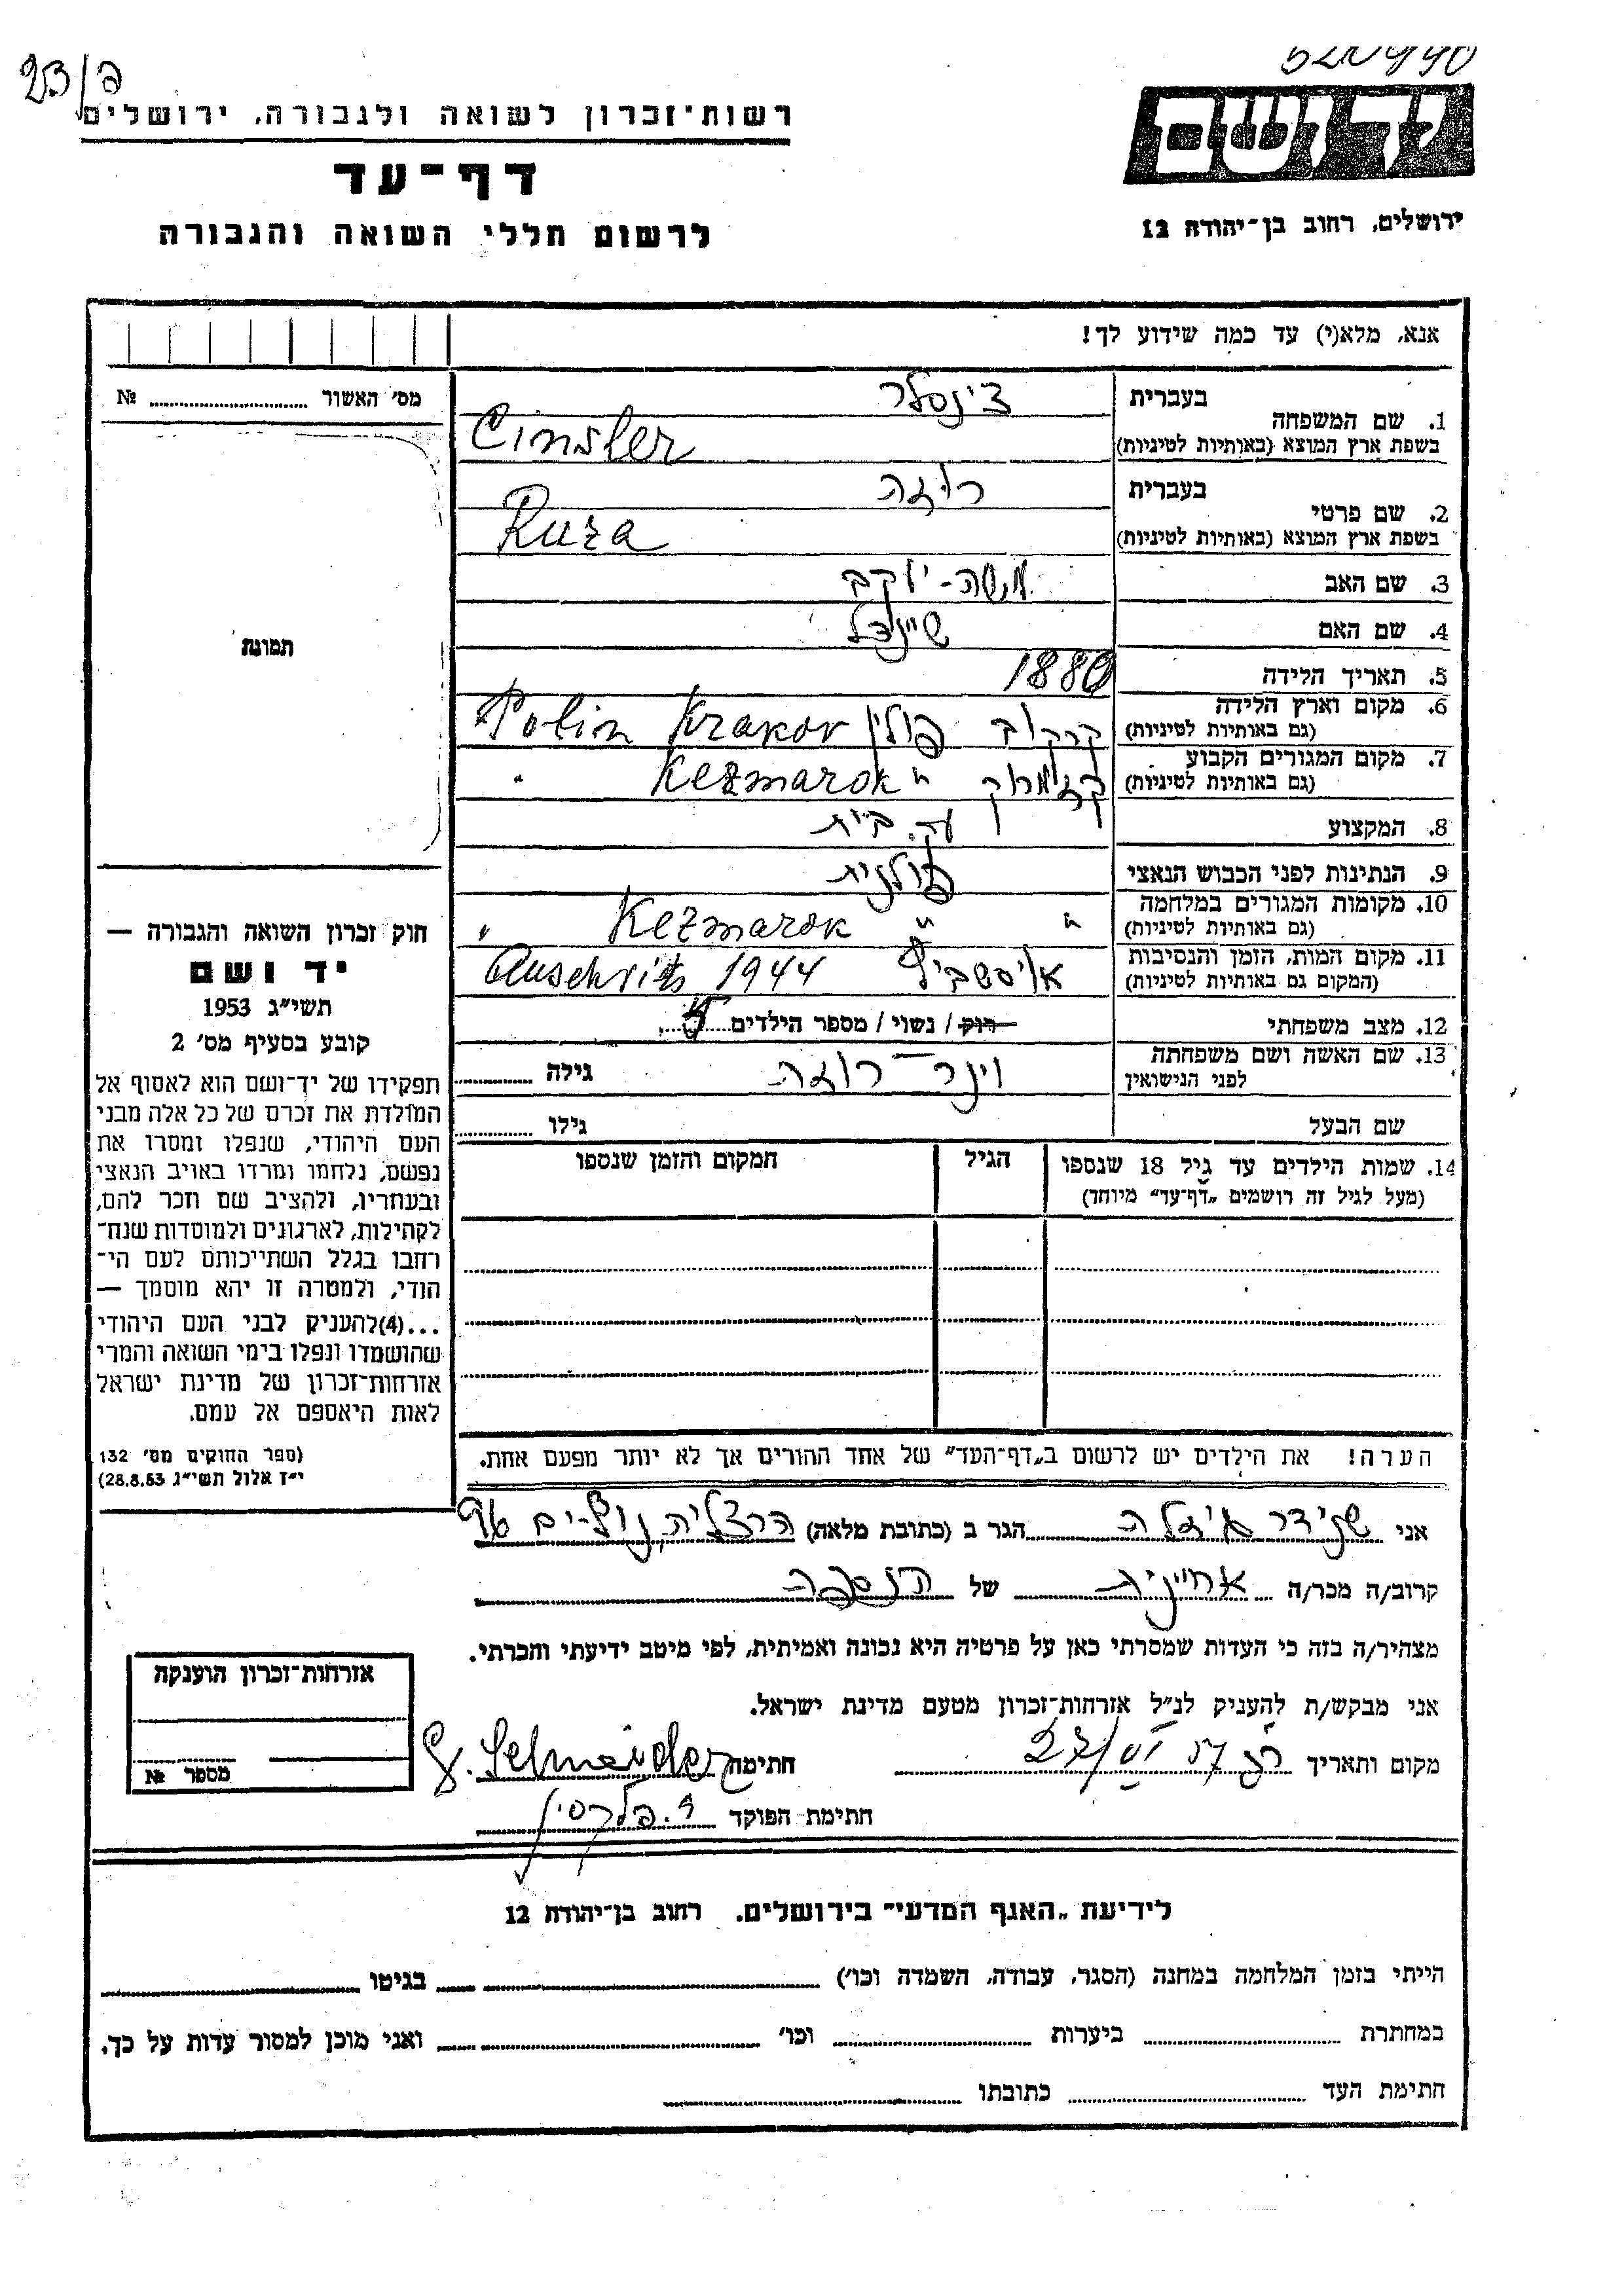 23/פ
520990
רשות־זכרון לשואה ולגבורה, ירושלים
דף־עד
לרשום חללי השואה והגבורה
ידושם
ירושלים, רחוב בן־יהודה 12
אנא, מלא(י) עד כמה שידוע לך!
מס׳ האשור № 
תמונה
בעברית צינסלר
1. שם המשפחה
בשפת ארץ המוצא (באותיות לטיניות) Cinsler
בעברית רוזה
2. שם פרטי
בשפת ארץ המוצא (באותיות לטיניות) Ruza
3. שם האב משה-יעקב
4. שם האם שיינדל
5. תאריך הלידה 1880
6. מקום וארץ הלידה קרקוב פולין Krakov Polin
(גם באותיות לטיניות)
7. מקום המגורים הקבוע קזמרוק " Kežmarok "
(גם באותיות לטיניות)
8. המקצוע עק. בית
9. הנתינות לפני הכבוש הנאצי פולנית
10. מקומות המגורים במלחמה " " Kežmarok "
(גם באותיות לטיניות)
11. מקום המות, הזמן והנסיבות אוסשביץ 1944 Auschvits
(המקום גם באותיות לטיניות)
12. מצב משפחתי רוק / נשוי / מספר הילדים 5
13. שם האשה ושם משפחתה וינר רוזה גילה
לפני הנישואין
שם הבעל גילו
14. שמות הילדים עד גיל 18 שנספו הגיל המקום והזמן שנספו
(מעל לגיל זה רושמים „דף־עד״ מיוחד)
הערה! את הילדים יש לרשום ב„דף־העד״ של אחד ההורים אך לא יותר מפעם אחת.
חוק זכרון השואה והגבורה —
יד ושם
תשי״ג 1953
קובע בסעיף מס׳ 2
תפקידו של יד־ושם הוא לאסוף אל
המולדת את זכרם של כל אלה מבני
העם היהודי, שנפלו ומסרו את
נפשם, נלחמו ומרדו באויב הנאצי
ובעוזריו, ולהציב שם וזכר להם,
לקהילות, לארגונים ולמוסדות שנח־
רבו בגלל השתייכותם לעם הי־
הודי, ולמטרה זו יהא מוסמך —
...(4)להעניק לבני העם היהודי
שהושמדו ונפלו בימי השואה והמרי
אזרחות־זכרון של מדינת ישראל
לאות היאספם אל עמם.
(ספר החוקים מס׳ 132
י״ז אלול תשי״ג 28.8.53)
אני שניידר גיזלה הגר ב (כתובת מלאה) הרצליה 96
קרוב/ה מכר/ה אחינית של הנספה
מצהיר/ה בזה כי העדות שמסרתי כאן על פרטיה היא נכונה ואמיתית, לפי מיטב ידיעתי והכרתי.
אני מבקש/ת להעניק לנ״ל אזרחות־זכרון מטעם מדינת ישראל.
מקום ותאריך 27/VI 57 חתימה G. Schneider
חתימת הפוקד
אזרחות־זכרון הוענקה
מספר №
לידיעת „האגף המדעי״ בירושלים. רחוב בן־יהודה 12
הייתי בזמן המלחמה במחנה (הסגר, עבודה, השמדה וכו׳) בגיטו
במחתרת ביערות וכו׳ ואני מוכן למסור עדות על כך.
חתימת העד כתובתו